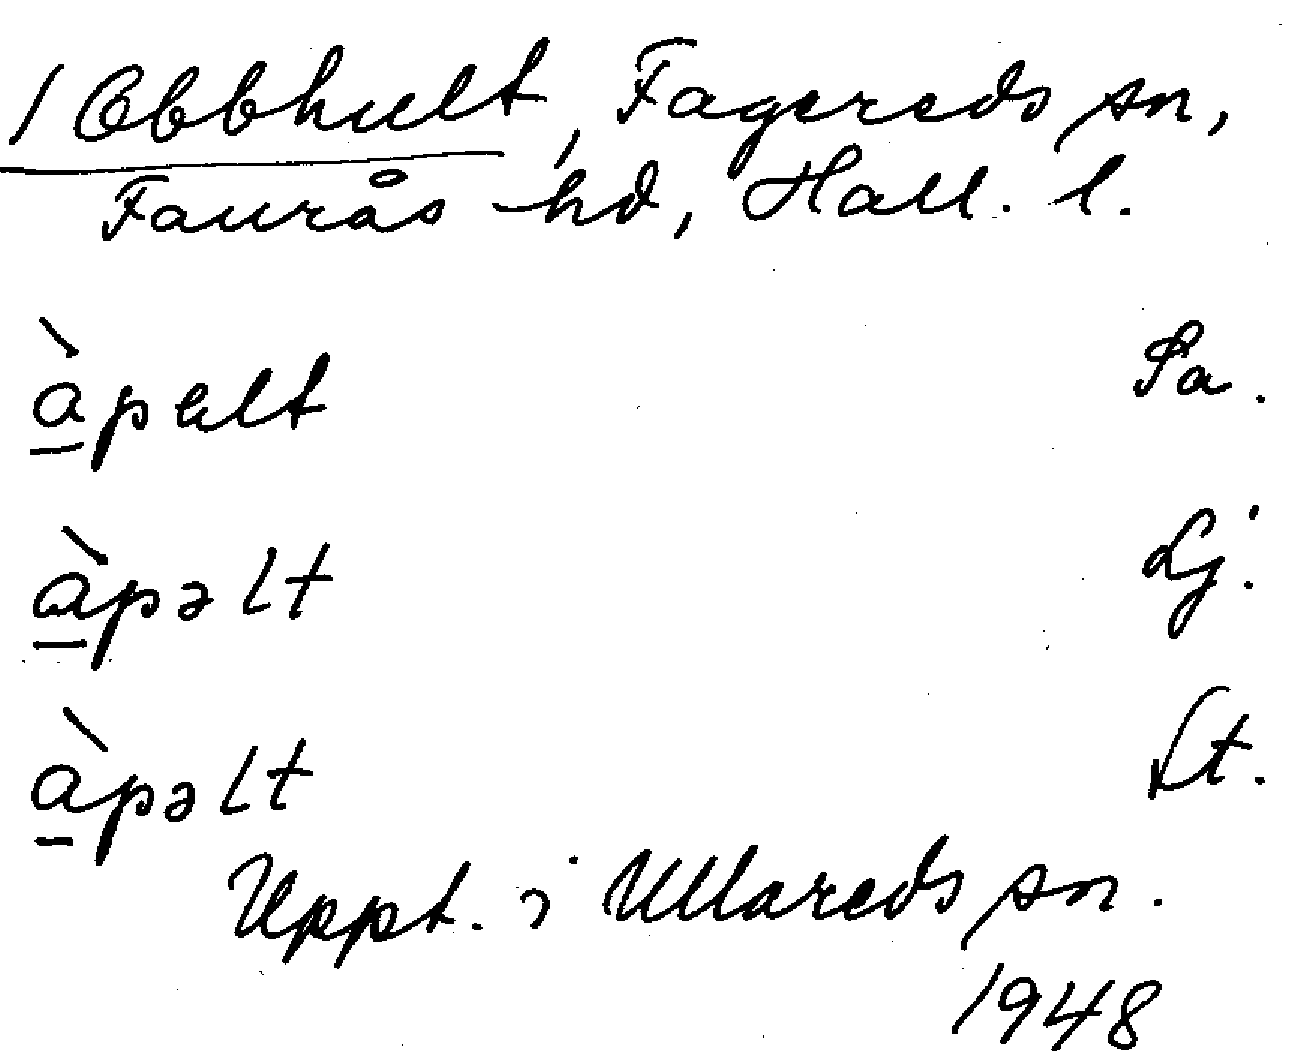 / Obbhult, Fagereds sn,
Faurås hd, Hall. l.
à̲pelt Sa.
à̲pəlt Lj.
à̲pəlt St.
Uppt. i Ullareds sn.
1948